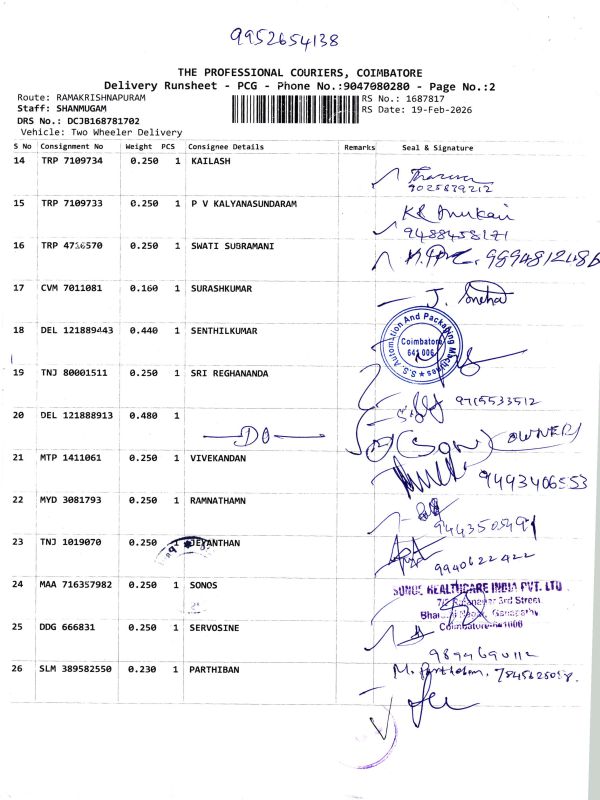 9952654138
THE PROFESSIONAL COURIERS, COIMBATORE
Delivery Runsheet - PCG - Phone No.:9047080280 - Page No.:2
Route: RAMAKRISHNAPURAM
Staff: SHANMUGAM
DRS No.: DCJB168781702
Vehicle: Two Wheeler Delivery
RS No.: 1687817
RS Date: 19-Feb-2026
S No Consignment No Weight PCS Consignee Details Remarks Seal & Signature
14 TRP 7109734 0.250 1 KAILASH
9025839212
15 TRP 7109733 0.250 1 P V KALYANASUNDARAM
9488458171
16 TRP 4716570 0.250 1 SWATI SUBRAMANI
9894812486
17 CVM 7011081 0.160 1 SURASHKUMAR
J. Sneha
18 DEL 121889443 0.440 1 SENTHILKUMAR
S.S. Automation And Packaging Machines
Coimbatore
641 006
19 TNJ 80001511 0.250 1 SRI REGHANANDA
9715533512
20 DEL 121888913 0.480 1
DO
(SON) OWNER
21 MTP 1411061 0.250 1 VIVEKANDAN
9493406553
22 MYD 3081793 0.250 1 RAMNATHAMN
23 TNJ 1019070 0.250 1 JEYANTHAN
9940622422
24 MAA 716357982 0.250 1 SONOS
HEALTHCARE INDIA PVT. LTD
3rd Street
Ganapathy
Coimbatore-641006
25 DDG 666831 0.250 1 SERVOSINE
9894690112
26 SLM 389582550 0.230 1 PARTHIBAN
M. Parthiban, 7845628058.